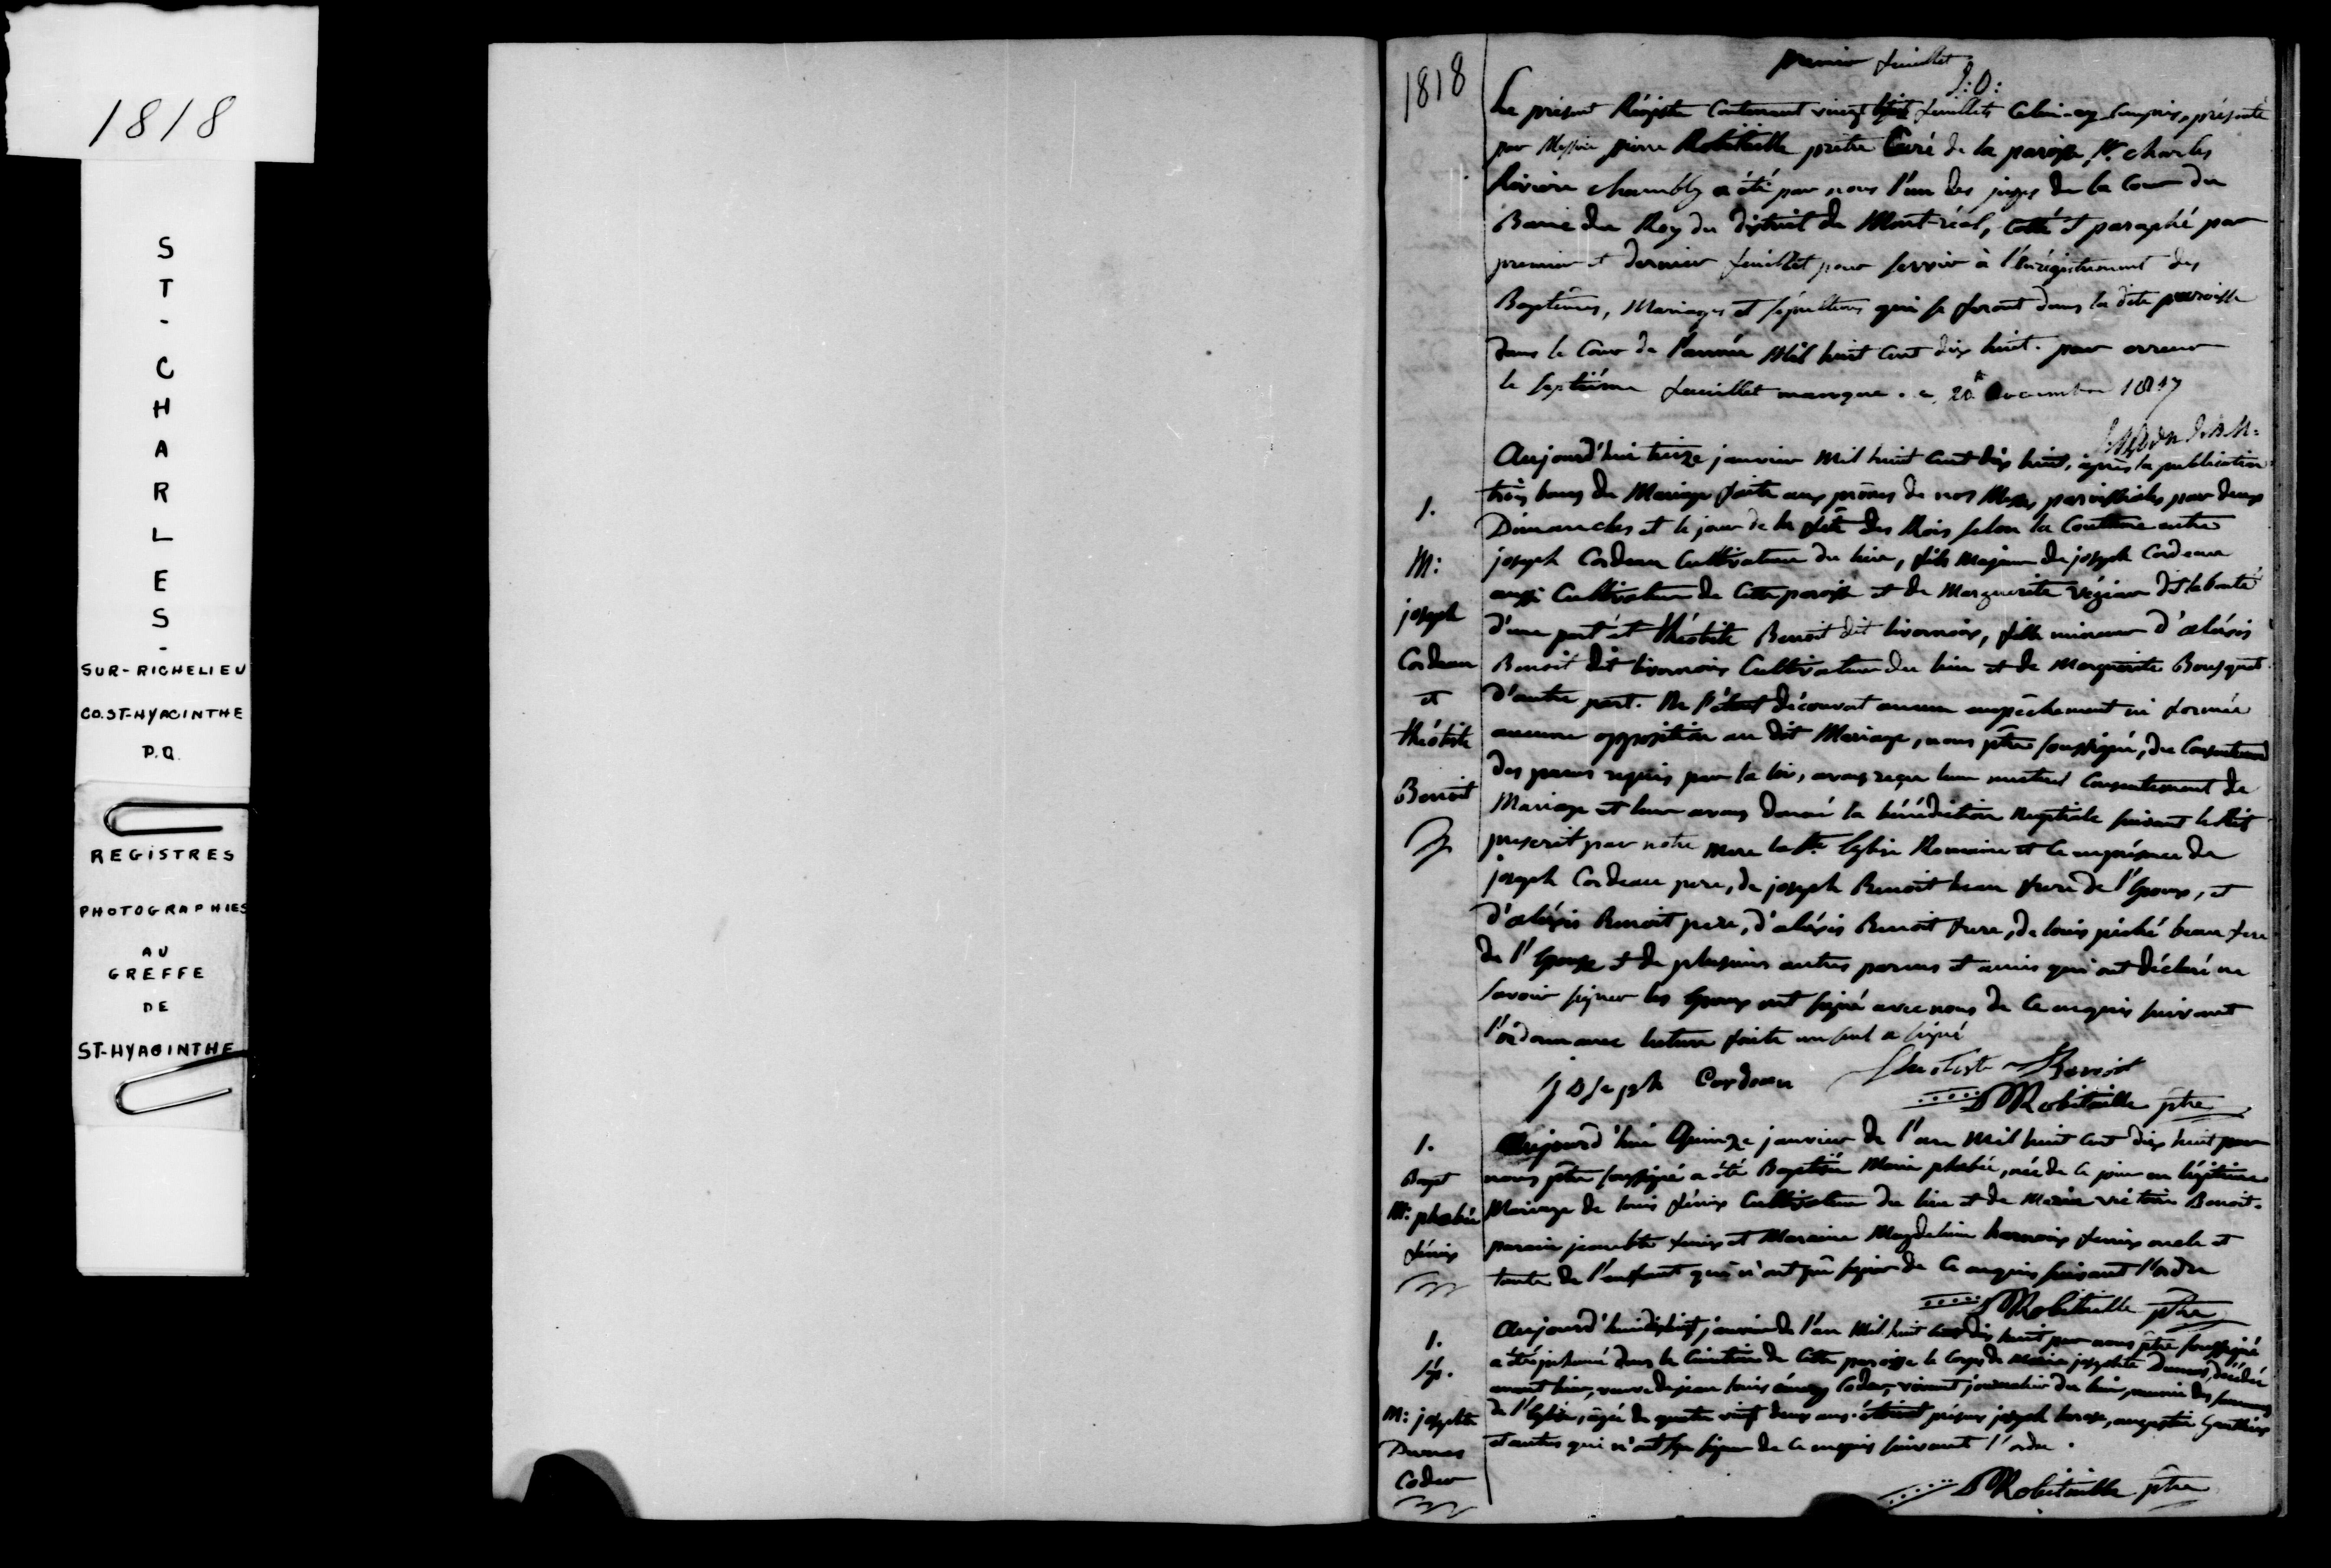 1818
S
T
-
C
H
A
R
L
E
S
-
SUR-RICHELIEU
CO. ST-HYACINTHE
P.Q.
REGISTRES
PHOTOGRAPHIES
AU
GREFFE
DE
ST-HYACINTHE
1818
premier feuillet
Le présent Régistre Contenant vingt huit feuillets Celui-cy Compris, présenté
par Messire pierre Robitaille prêtre Curé de la paroisse St. charles
Rivière chambly a été par nous l'un des juges de la Cour du
Banc du Roy du district de Mont-réal, Cotté et paraphé par
premier et dernier feuillet pour servir à l'Enrégistrement des
Baptêmes, Mariages et sépultures qui se feront dans la dite paroisse
dans le Cour de l'année Mil huit Cent dix huit. par erreur
le septième feuillet manque. ce 20 Decembre 1817
1.
M:
joseph
Cordeau
et
théotiste
Benoit
Aujourd'hui treize janvier Mil huit Cent dix huit, après la publication
trois bans de Mariage faite aux prônes de nos Messes paroissiales par deux
Dimanches et le jour de la fête des Rois selon la Coutume entre
joseph Cordeau Cultivateur du lieu, fils Majeur de joseph Cordeau
aussi Cultivateur de Cette paroisse et de Marguerite végiar dit labonté
d'une part et théotiste Benoit dit livernois, fille mineure d'aléxis
Benoit dit livernois Cultivateur du lieu et de Marguerite Bousquet
d'autre part. Ne s'étant découvert aucun empêchement ni formée
aucune opposition au dit Mariage, nous ptre soussigné, du Consentement
des parens requis par la loi, avons reçu leur mutuel Consentement de
Mariage et leur avons donné la bénédiction Nuptiale suivant le Rit
prescrit par notre mere la Ste. Eglise Romaine et ce en présence de
joseph Cordeau pere, de joseph Benoit beau frere de l'Epoux, et
d'aléxis Benoit pere, d'aléxis Benoit frere, de louis piché beau frere
de l'Epouse et de plusieurs autres parens et amis qui ont déclaré ne
savoir signer les Epoux ont signé avec nous de Ce enquis suivant
l'ordonnance lecture faite un seul a signé
Joseph Cordeau théotiste Benoit
Robitaille ptre
1.
Bapt
M: phebée
fénix
Aujourd'hui Quinze janvier de l'an Mil huit Cent dix huit par
nous ptre soussigné a été Baptisée Marie phebée, née de Ce jour en légitime
Mariage de louis fénix Cultivateur du lieu et de Marie victoire Benoit.
parain jeanbte fenix et Maraine Magdeleine harnois fenix oncle et
tante de l'enfant qui n'ont sçu signer de Ce enquis suivant l'ordce
Robitaille ptre
1.
sép.
M: josephte
Dumas
Coder
Aujourd'hui dix huit janvier de l'an Mil huit Cent dix huit par nous ptre soussigné
a été inhumé dans le Cimetière de Cette paroisse le Corps de Marie josephte Dumas, décédée
avant hier, veuve de jean louis Coder, vivant journalier du lieu, munie des sacremens
de l'Eglise, agée de quatre vingt deux ans. étoient présens joseph augustin Gauthier
et autres qui n'ont sçu signer de Ce enquis suivant l'ordce.
Robitaille ptre